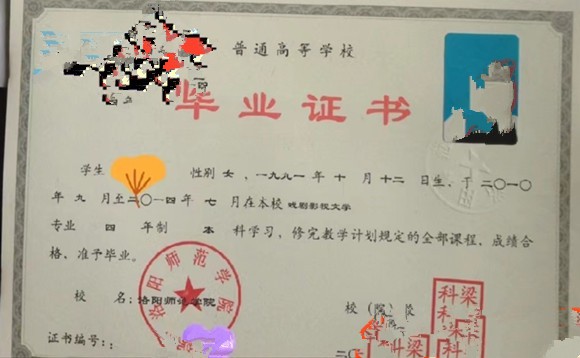 普通高等学校
毕业证书
学生 性别 女，一九九一年 十 月 十二 日生，于 二〇一〇
年 九 月至 二〇一四 年 七 月在本校 戏剧影视文学
专业 四 年制 本 科学习，修完教学计划规定的全部课程，成绩合
格，准予毕业。
洛阳师范学院
校 名：洛阳师范学院 校（院）
科梁
证书编号： 二〇